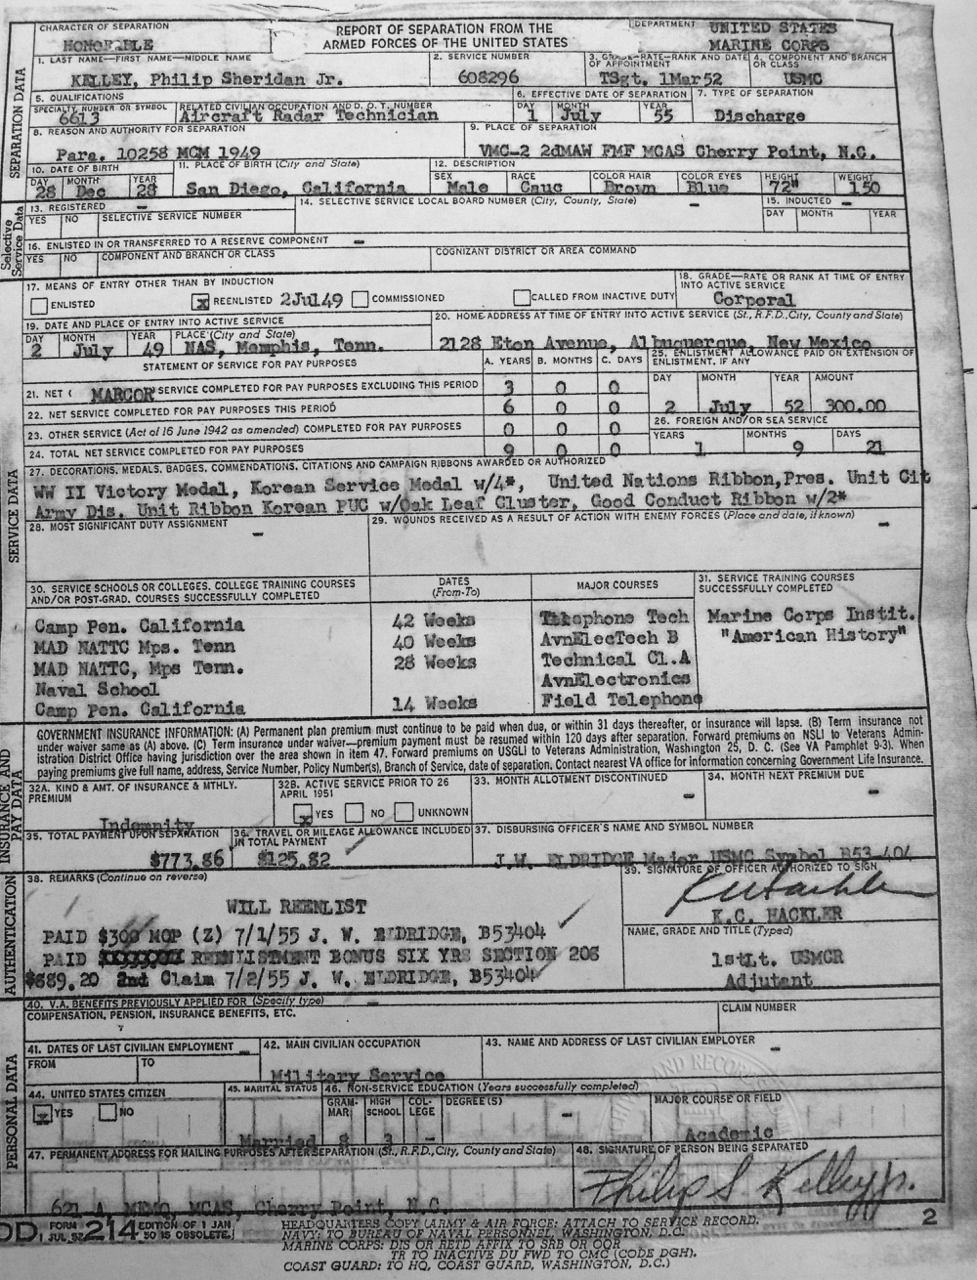 CHARACTER OF SEPARATION
HONORABLE
REPORT OF SEPARATION FROM THE
ARMED FORCES OF THE UNITED STATES
DEPARTMENT
UNITED STATES
MARINE CORPS
SEPARATION DATA
1. LAST NAME—FIRST NAME—MIDDLE NAME
KELLEY, Philip Sheridan Jr.
2. SERVICE NUMBER
608296
3. GRADE-RATE-RANK AND DATE OF APPOINTMENT
TSgt. 1Mar52
4. COMPONENT AND BRANCH OR CLASS
USMC
5. QUALIFICATIONS
SPECIALTY NUMBER OR SYMBOL
6613
RELATED CIVILIAN OCCUPATION AND D. O. T. NUMBER
Aircraft Radar Technician
6. EFFECTIVE DATE OF SEPARATION
DAY MONTH YEAR
1 July 55
7. TYPE OF SEPARATION
Discharge
8. REASON AND AUTHORITY FOR SEPARATION
Para. 10258 MCM 1949
9. PLACE OF SEPARATION
VMC-2 2dMAW FMF MCAS Cherry Point, N.C.
10. DATE OF BIRTH
DAY MONTH YEAR
28 Dec 28
11. PLACE OF BIRTH (City and State)
San Diego, California
12. DESCRIPTION
SEX RACE COLOR HAIR COLOR EYES HEIGHT WEIGHT
Male Cauc Brown Blue 72" 150
Selective Service Data
13. REGISTERED -
YES NO SELECTIVE SERVICE NUMBER
14. SELECTIVE SERVICE LOCAL BOARD NUMBER (City, County, State) -
15. INDUCTED -
DAY MONTH YEAR
16. ENLISTED IN OR TRANSFERRED TO A RESERVE COMPONENT -
YES NO COMPONENT AND BRANCH OR CLASS
COGNIZANT DISTRICT OR AREA COMMAND
SERVICE DATA
17. MEANS OF ENTRY OTHER THAN BY INDUCTION
ENLISTED x REENLISTED 2Jul49 COMMISSIONED CALLED FROM INACTIVE DUTY
18. GRADE—RATE OR RANK AT TIME OF ENTRY INTO ACTIVE SERVICE
Corporal
19. DATE AND PLACE OF ENTRY INTO ACTIVE SERVICE
DAY MONTH YEAR PLACE (City and State)
2 July 49 NAS, Memphis, Tenn.
20. HOME ADDRESS AT TIME OF ENTRY INTO ACTIVE SERVICE (St., R.F.D., City, County and State)
2128 Eton Avenue, Albuquerque, New Mexico
STATEMENT OF SERVICE FOR PAY PURPOSES
A. YEARS B. MONTHS C. DAYS
21. NET ( MARCOR SERVICE COMPLETED FOR PAY PURPOSES EXCLUDING THIS PERIOD 3 0 0
22. NET SERVICE COMPLETED FOR PAY PURPOSES THIS PERIOD 6 0 0
23. OTHER SERVICE (Act of 16 June 1942 as amended) COMPLETED FOR PAY PURPOSES 0 0 0
24. TOTAL NET SERVICE COMPLETED FOR PAY PURPOSES 9 0 0
25. ENLISTMENT ALLOWANCE PAID ON EXTENSION OF ENLISTMENT, IF ANY
DAY MONTH YEAR AMOUNT
2 July 52 300.00
26. FOREIGN AND/OR SEA SERVICE
YEARS 1 MONTHS 9 DAYS 21
27. DECORATIONS, MEDALS, BADGES, COMMENDATIONS, CITATIONS AND CAMPAIGN RIBBONS AWARDED OR AUTHORIZED
WW II Victory Medal, Korean Service Medal w/4*, United Nations Ribbon,Pres. Unit Cit
Army Dis. Unit Ribbon Korean PUC w/Oak Leaf Cluster, Good Conduct Ribbon w/2*
28. MOST SIGNIFICANT DUTY ASSIGNMENT
-
29. WOUNDS RECEIVED AS A RESULT OF ACTION WITH ENEMY FORCES (Place and date, if known)
-
30. SERVICE SCHOOLS OR COLLEGES, COLLEGE TRAINING COURSES AND/OR POST-GRAD. COURSES SUCCESSFULLY COMPLETED
DATES (From-To)
MAJOR COURSES
31. SERVICE TRAINING COURSES SUCCESSFULLY COMPLETED
Camp Pen. California 42 Weeks Telephone Tech Marine Corps Instit.
MAD NATTC Mps. Tenn 40 Weeks AvnElecTech B "American History"
MAD NATTC, Mps Tenn. 28 Weeks Technical Cl.A
Naval School AvnElectronics
Camp Pen. California 14 Weeks Field Telephone
INSURANCE AND PAY DATA
GOVERNMENT INSURANCE INFORMATION: (A) Permanent plan premium must continue to be paid when due, or within 31 days thereafter, or insurance will lapse. (B) Term insurance not
under waiver same as (A) above. (C) Term insurance under waiver—premium payment must be resumed within 120 days after separation. Forward premiums on NSLI to Veterans Admin-
istration District Office having jurisdiction over the area shown in item 47, Forward premiums on USGLI to Veterans Administration, Washington 25, D. C. (See VA Pamphlet 9-3). When
paying premiums give full name, address, Service Number, Policy Number(s), Branch of Service, date of separation. Contact nearest VA office for information concerning Government Life Insurance.
32A. KIND & AMT. OF INSURANCE & MTHLY. PREMIUM
Indemnity
32B. ACTIVE SERVICE PRIOR TO 26 APRIL 1951
x YES NO UNKNOWN
33. MONTH ALLOTMENT DISCONTINUED
-
34. MONTH NEXT PREMIUM DUE
-
35. TOTAL PAYMENT UPON SEPARATION
$773.86
36. TRAVEL OR MILEAGE ALLOWANCE INCLUDED IN TOTAL PAYMENT
$125.82
37. DISBURSING OFFICER'S NAME AND SYMBOL NUMBER
J.W. ELDRIDGE Major USMC Symbol B53 404
AUTHENTICATION
38. REMARKS (Continue on reverse)
WILL REENLIST
PAID $300 MOP (Z) 7/1/55 J. W. ELDRIDGE, B53404
PAID REENLISTMENT BONUS SIX YRS SECTION 208
$689.20 2nd Claim 7/2/55 J. W. ELDRIDGE, B53404
39. SIGNATURE OF OFFICER AUTHORIZED TO SIGN
K C Hackler
K.C. HACKLER
NAME, GRADE AND TITLE (Typed)
1stLt. USMCR
Adjutant
PERSONAL DATA
40. V.A. BENEFITS PREVIOUSLY APPLIED FOR (Specify type) -
COMPENSATION, PENSION, INSURANCE BENEFITS, ETC.
CLAIM NUMBER
41. DATES OF LAST CIVILIAN EMPLOYMENT -
FROM TO
42. MAIN CIVILIAN OCCUPATION
Military Service
43. NAME AND ADDRESS OF LAST CIVILIAN EMPLOYER -
44. UNITED STATES CITIZEN
x YES NO
45. MARITAL STATUS
Married
46. NON-SERVICE EDUCATION (Years successfully completed)
GRAM-MAR HIGH SCHOOL COL-LEGE DEGREE(S) MAJOR COURSE OR FIELD
8 3 - - Academic
47. PERMANENT ADDRESS FOR MAILING PURPOSES AFTER SEPARATION (St., R.F.D., City, County and State)
621 A, MEMQ, MCAS, Cherry Point, N.C.
48. SIGNATURE OF PERSON BEING SEPARATED
Philip S Kelley Jr.
DD FORM 1 JUL 52 214 EDITION OF 1 JAN 50 IS OBSOLETE.
HEADQUARTERS COPY (ARMY & AIR FORCE: ATTACH TO SERVICE RECORD.
NAVY: TO BUREAU OF NAVAL PERSONNEL, WASHINGTON, D.C.
MARINE CORPS: DIS OR RETD AFFIX TO SRB OR OQR
TR TO INACTIVE DU FWD TO CMC (CODE DGH).
COAST GUARD: TO HQ, COAST GUARD, WASHINGTON, D.C.)
2